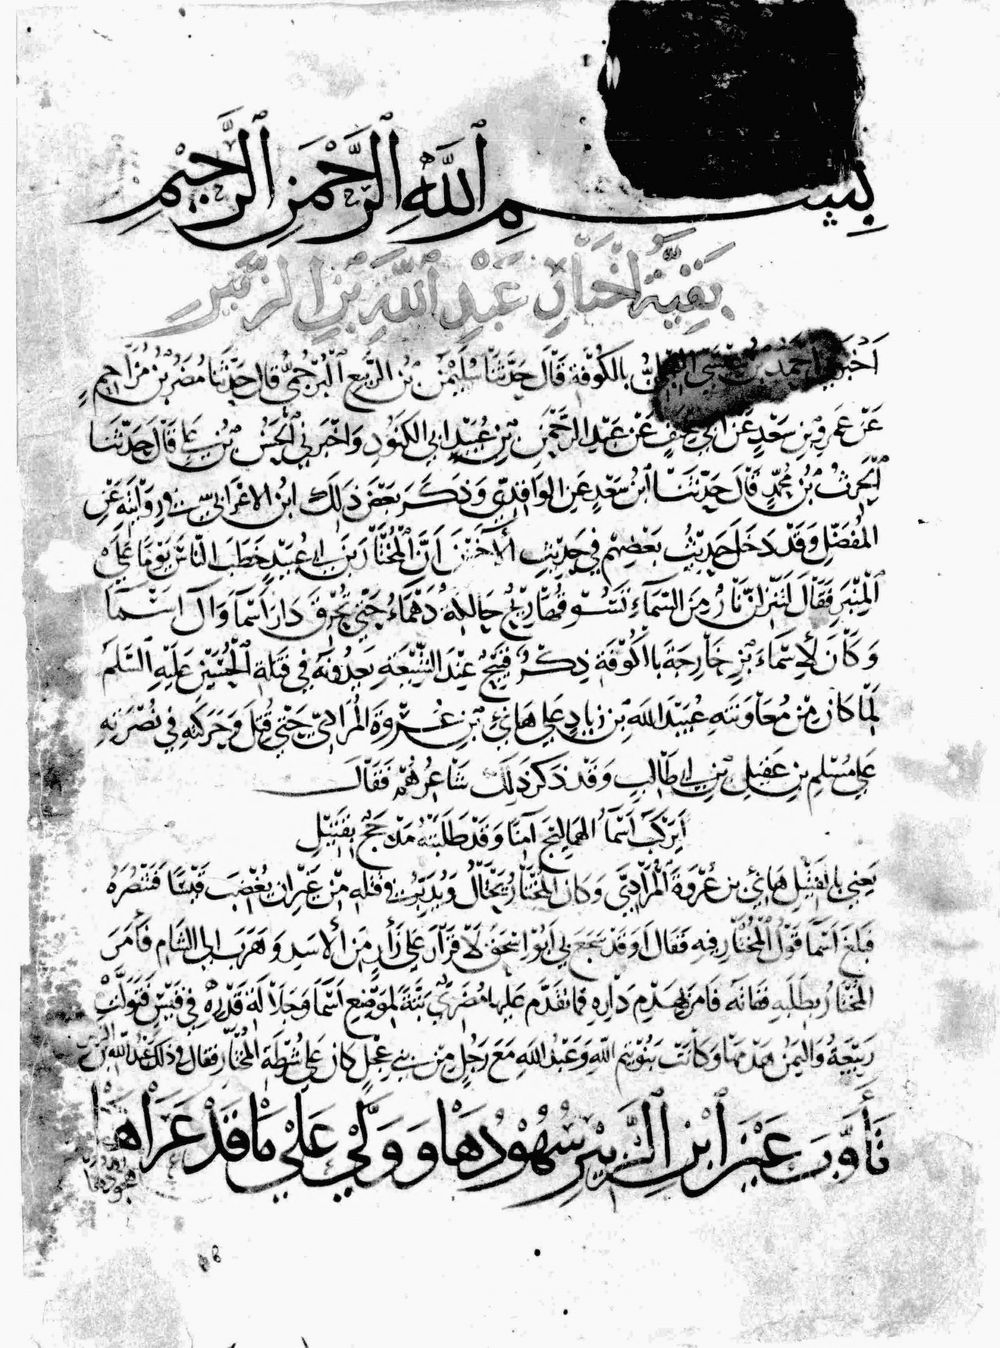 بِسْمِ اللّٰهِ الرَّحْمٰنِ الرَّحِيْمِ
بَقِيَّةُ اَخْبَارِ عَبْدِ اللّٰهِ بْنِ الزُّبَيْرِ
اَخْبَرَنِي اَحْمَدُ بْنُ عِيسَى العِجْلِيُّ بِالكُوْفَةِ قَالَ حَدَّثَنَا سُلَيْمٰنُ بْنُ الرَّبِيعِ الْبُرْجُمِيُّ قَالَ حَدَّثَنَا مُضَرُ بْنُ مُزَاحِمٍ
عَنْ عَمْرِو بْنِ سَعْدٍ عَنْ اَبِي مِخْنَفٍ عَنْ عَبْدِ الرَّحْمٰنِ بْنِ عُبَيْدٍ ابي الكَنُودِ وَاخْبَرَنِي الْحَسَنُ بْنُ عَلِي قَالَ حَدَّثَنَا
الْحٰرِثُ بْنُ مُحَمَّدٍ قَالَ حَدَّثَنَا ابْنُ سَعْدٍ عَنِ الوَاقِدِيِّ وَذَكَرَ بَعْضَ ذَلِكَ ابْنُ الاَعْرَابِي في رِوَايَتِهِ عَنِ
المُفَضَّلِ وَقَدْ دَخَلَ حَدِيْثُ بَعْضِهِمْ فِي حَدِيْثِ الآخَرِيْنَ اَنَّ الْمُخْتَارَ بْنَ ابي عُبَيْدٍ خَطَبَ النَّاسَ يَوْمًا عَلَى
الْمِنْبَرِ فَقَالَ لَتَنْزِلَنَّ نَارٌ مِنَ السَّمَآءِ تَسُوْقُهَا رِيْحٌ حَالِكَةٌ دَهْمَاءُ حَتَّى تُحْرِقَ دَارَ اَسْمَا وَآلَ اَسْمَا
وَكَانَ لِأَسْمَاءَ بْنِ خَارِجَةَ بِالكُوْفَةِ ذِكْرٌ قَبِيْحٌ عِنْدَ الشِّيْعَةِ يَعُدُّونَهُ فِي قَتَلَةِ الْحُسَيْنِ عَلَيْهِ السَّلٰمُ
لِمَا كَانَ مِنْ مُعَاوَنَتِهِ عُبَيْدَ اللّٰهِ بْنَ زِيَادٍ عَلَى هَانِئِ بْنِ عُرْوَةَ الْمُرَادِيِّ حَتَّى قُتِلَ وَحَرَكَتِهِ فِي نُصْرَتِهِ
عَلَى مُسْلِمِ بْنِ عَقِيْلِ بْنِ ابي طَالِبٍ وَقَدْ ذَكَرَ ذٰلِكَ شَاعِرُهُمْ فَقَالَ
اَيَرْكَبُ اَسْمَآءُ الهَمَالِيجَ آمِنًا وَقَدْ طَلَبَتْهُ مَذْحِجٌ بِقَتِيْلِ
يَعْنِي بِالقَتِيْلِ هَانِئَ بْنَ عُرْوَةَ الْمُرَادِيَّ وَكَانَ الْمُخْتَارُ يَحْتَالُ وَيُدَبِّرُ في قَتْلِهِ مِنْ غَيْرِ اَنْ يُغْضِبَ قَيْسًا فَتَنْصُرَهُ
فَبَلَغَ اَسْمَا قَوْلُ الْمُخْتَارِ فِيهِ فَقَالَ اَوَقَدْ سَجَعَ بِي اَبُو اِسْحَقَ لَا قَرَارَ عَلَى زَأْرٍ مِنَ الأَسَدِ وَهَرَبَ الى الشَّامِ فَأَمَرَ
الْمُخْتَارُ بِطَلَبِهِ فَفَاتَهُ فَامَرَ بِهَدْمِ دَارِهِ فَمَا تَقَدَّمَ عَلَيْهَا مُضَرِيٌّ بَتَّةً لِمَوْضِعِ اَسْمَا وَجَلَالَةِ قَدْرِهِ فِي قَيْسٍ فَتَوَلَّتْ
رَبِيْعَةُ وَاليَمَنُ هَدْمَهَا وَكَانَتْ بَنُو تَيْمِ اللّٰهِ وَعَبْدُ اللّٰهِ مَعَ رَجُلٍ مِنْ بَنِي عِجْلٍ كَانَ عَلَى شُرْطَةِ الْمُخْتَارِ فَقَالَ فِي ذٰلِكَ عَبْدُ اللّٰهِ بْنُ الزَّبِيرِ
تَأَوَّبَ عَيْنَ ابْنِ الزَّبِيْرِ سُهُوْدُهَا وَوَلَّى عَلٰى مَا قَدْ عَرَاهَا
هُجُوْدُهَا